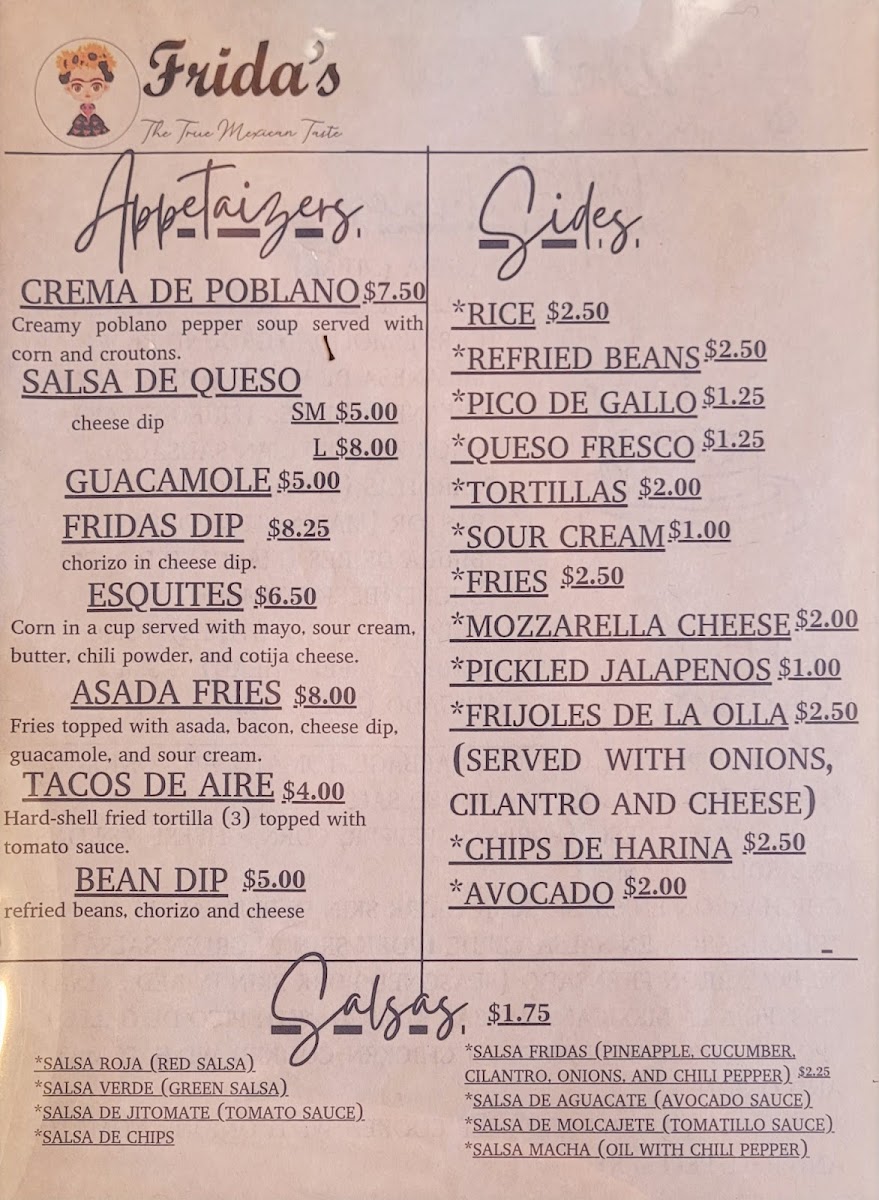 Frida's
The True Mexican Taste
Appetaizers
CREMA DE POBLANO $7.50
Creamy poblano pepper soup served with
corn and croutons.
SALSA DE QUESO
cheese dip SM $5.00
L $8.00
GUACAMOLE $5.00
FRIDAS DIP $8.25
chorizo in cheese dip.
ESQUITES $6.50
Corn in a cup served with mayo, sour cream,
butter, chili powder, and cotija cheese.
ASADA FRIES $8.00
Fries topped with asada, bacon, cheese dip,
guacamole, and sour cream.
TACOS DE AIRE $4.00
Hard-shell fried tortilla (3) topped with
tomato sauce.
BEAN DIP $5.00
refried beans, chorizo and cheese
Sides
*RICE $2.50
*REFRIED BEANS $2.50
*PICO DE GALLO $1.25
*QUESO FRESCO $1.25
*TORTILLAS $2.00
*SOUR CREAM $1.00
*FRIES $2.50
*MOZZARELLA CHEESE $2.00
*PICKLED JALAPENOS $1.00
*FRIJOLES DE LA OLLA $2.50
(SERVED WITH ONIONS,
CILANTRO AND CHEESE)
*CHIPS DE HARINA $2.50
*AVOCADO $2.00
Salsas $1.75
*SALSA ROJA (RED SALSA)
*SALSA VERDE (GREEN SALSA)
*SALSA DE JITOMATE (TOMATO SAUCE)
*SALSA DE CHIPS
*SALSA FRIDAS (PINEAPPLE, CUCUMBER,
CILANTRO, ONIONS, AND CHILI PEPPER) $2.25
*SALSA DE AGUACATE (AVOCADO SAUCE)
*SALSA DE MOLCAJETE (TOMATILLO SAUCE)
*SALSA MACHA (OIL WITH CHILI PEPPER)